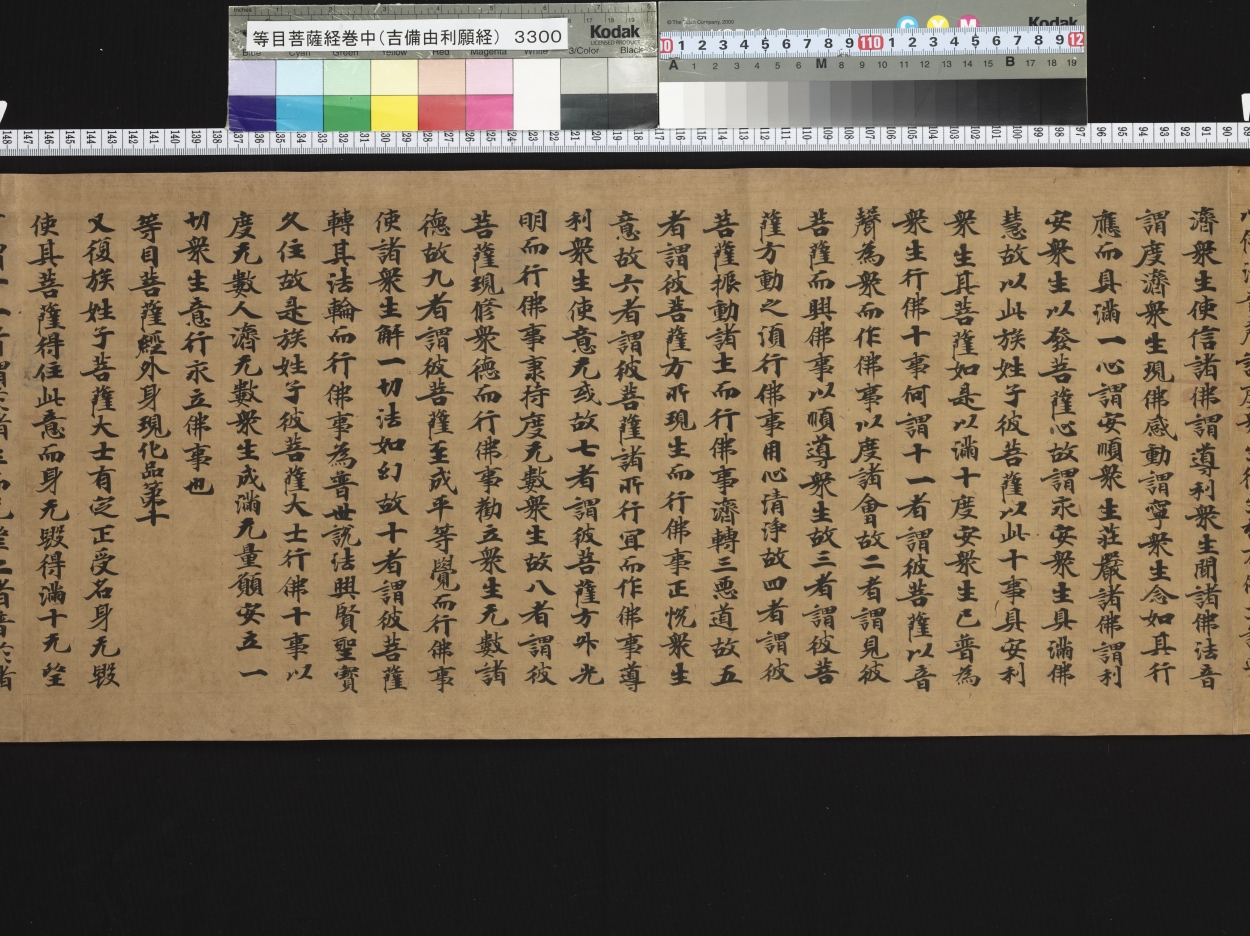 等目菩薩経巻中(吉備由利願経) 3300
Kodak
濟衆生使信諸佛謂導利衆生聞諸佛法音
謂度濟衆生現佛感動謂寧衆生念如其行
應而具滿一心謂安順衆生莊嚴諸佛謂利
安衆生以發菩薩心故謂永安衆生具滿佛
慧故以此族姓子彼菩薩以此十事具安利
衆生具菩薩如是以滿十度安衆生已普為
衆生行佛十事何謂十一者謂彼菩薩以音
聲為衆而作佛事以度諸會故二者謂見彼
菩薩而興佛事以順導衆生故三者謂彼菩
薩方動之須行佛事用心清淨故四者謂彼
菩薩振動諸土而行佛事濟轉三惡道故五
者謂彼菩薩方所現生而行佛事正悅衆生
意故六者謂彼菩薩諸所行宜而作佛事導
利衆生使意无或故七者謂彼菩薩方外光
明而行佛事秉持度无數衆生故八者謂彼
菩薩現修衆德而行佛事勸立衆生无數諸
德故九者謂彼菩薩至成平等覺而行佛事
使諸衆生解一切法如幻故十者謂彼菩薩
轉其法輪而行佛事為普世說法興賢聖寶
久住故是族姓子彼菩薩大士行佛十事以
度无數人濟无數衆生成滿无量願安立一
切衆生意行永立佛事也
等目菩薩經外身現化品第十
又復族姓子菩薩大士有定正受名身无毀
使其菩薩得住此意而身无毀得滿十无㘴